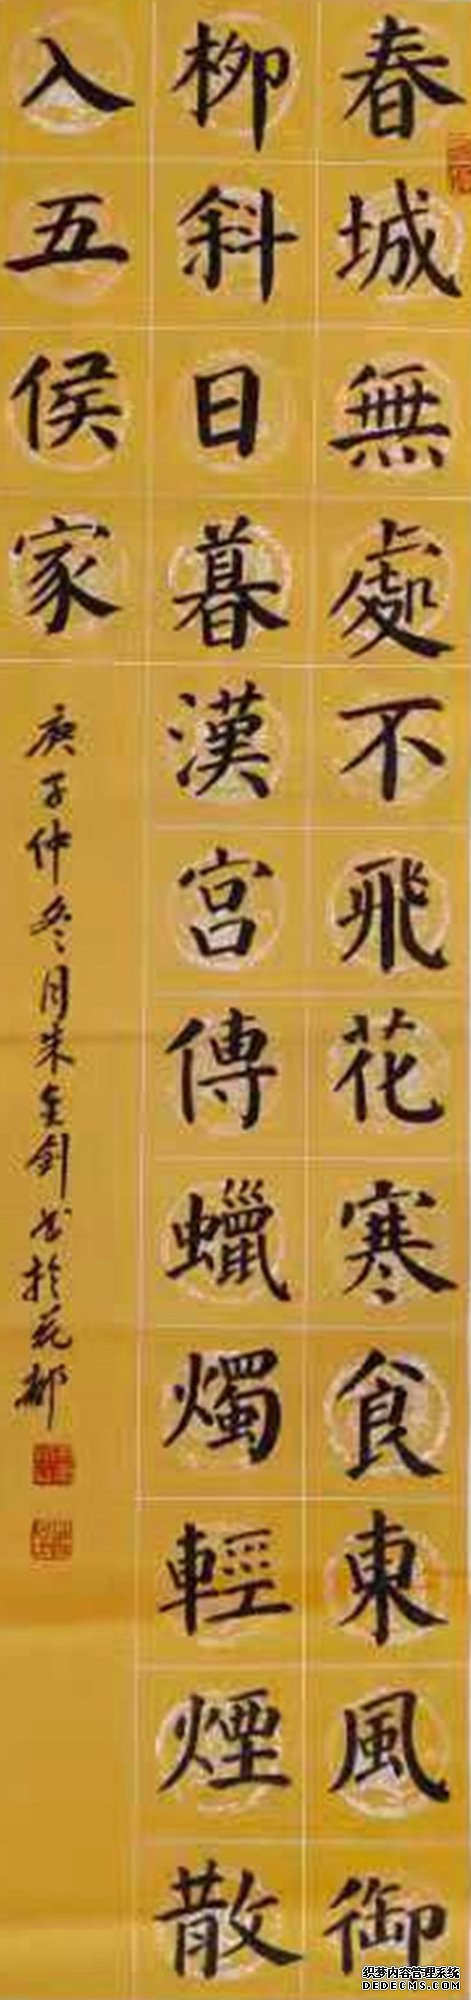 春城無處不飛花寒食東風御
柳斜日暮漢宮傳蠟燭輕煙散
入五侯家
庚子仲冬月朱金釗書於花都
织梦内容管理系统
DEDECMS.COM